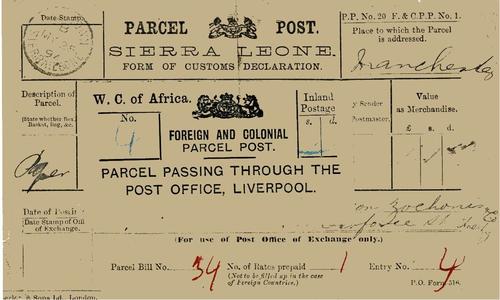 Date Stamp.
PARCEL POST.
SIERRA LEONE.
FORM OF CUSTOMS DECLARATION.
P.P. No. 20 F. & C.P.P. No. 1.
Place to which the Parcel
is addressed.
Manchester
Description of
Parcel.
(State whether Box,
Basket, Bag, &c.
Paper
W. C. of Africa.
No.
4
FOREIGN AND COLONIAL
PARCEL POST.
Inland
Postage
s. d.
PARCEL PASSING THROUGH THE
POST OFFICE, LIVERPOOL.
y Sender
Postmaster.
Value
as Merchandise.
£ s. d.
Date of Posting
Date Stamp of Office
of Exchange.
Zochonis
(For use of Post Office of Exchange only.)
Parcel Bill No. 34 No. of Rates prepaid 1 Entry No. 4
(Not to be filled up in the case
of Foreign Countries.)
P.O. Form 518.
Sons Ld., London.